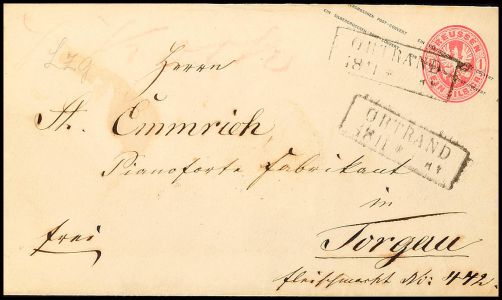 EIN SILBERGROSCHEN POST-COUVERT
PREUSSEN
EIN SILBERGR.
ORTRAND
18 11 *
Herrn
A. Emmrich,
ORTRAND
18 11 *
Pianoforte Fabrikant
in
frei
Torgau
fleischmarkt No: 472.